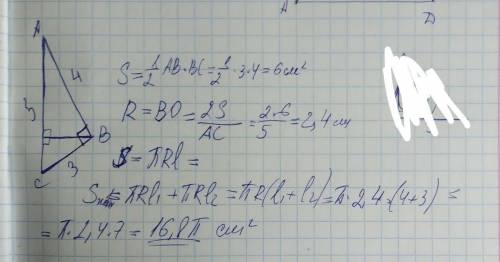 A D
A
4
5
B
3
C
S = 1/2 AB·BC = 1/2 · 3·4 = 6 см²
R = BO = 2S/AC = 2·6/5 = 2,4 см
S = πRl =
= πRl₁ + πRl₂ = πR(l₁ + l₂) = π·2,4·(4+3) =
= π·2,4·7 = 16,8π см²